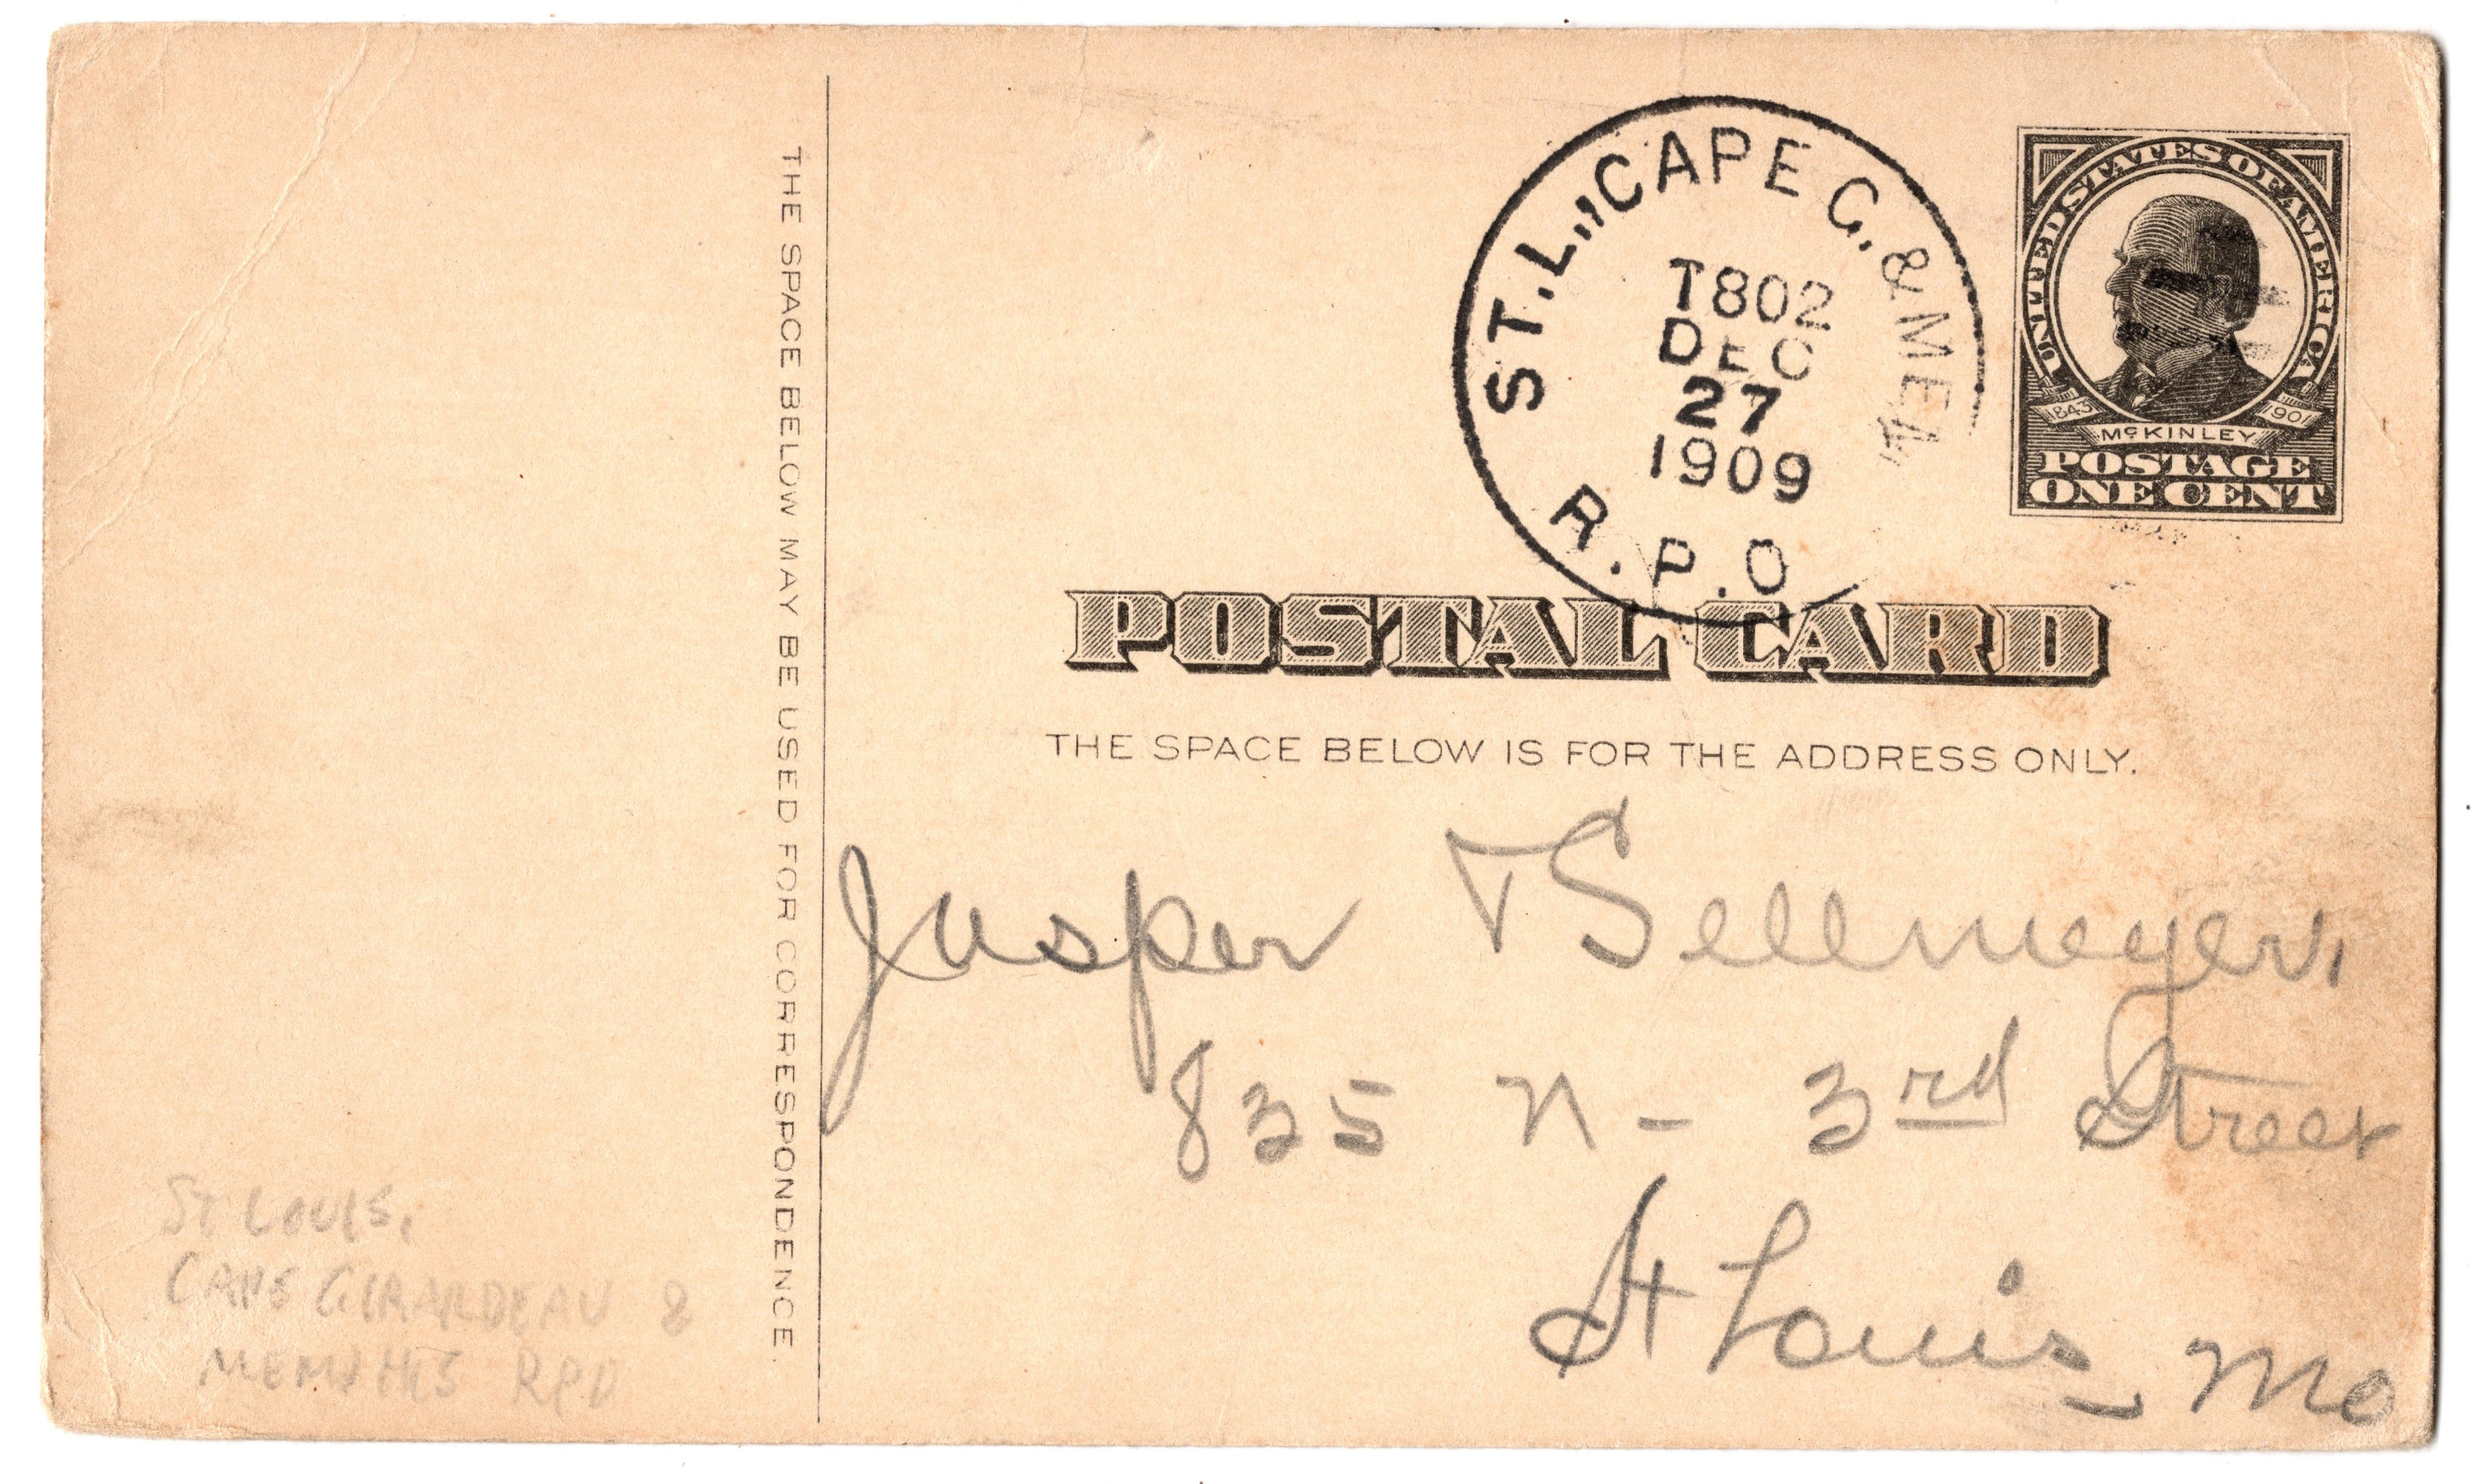 THE SPACE BELOW MAY BE USED FOR CORRESPONDENCE.
ST. L., CAPE G. & MEM.
T802
DEC
27
1909
R.P.O.
UNITED STATES OF AMERICA
1843 1901
McKINLEY
POSTAGE
ONE CENT
POSTAL CARD
THE SPACE BELOW IS FOR THE ADDRESS ONLY.
Jasper T Sellmeyer,
835 N - 3rd Street
St Louis, Mo
ST LOUIS,
CAPE GIRARDEAU &
MEMPHIS RPO